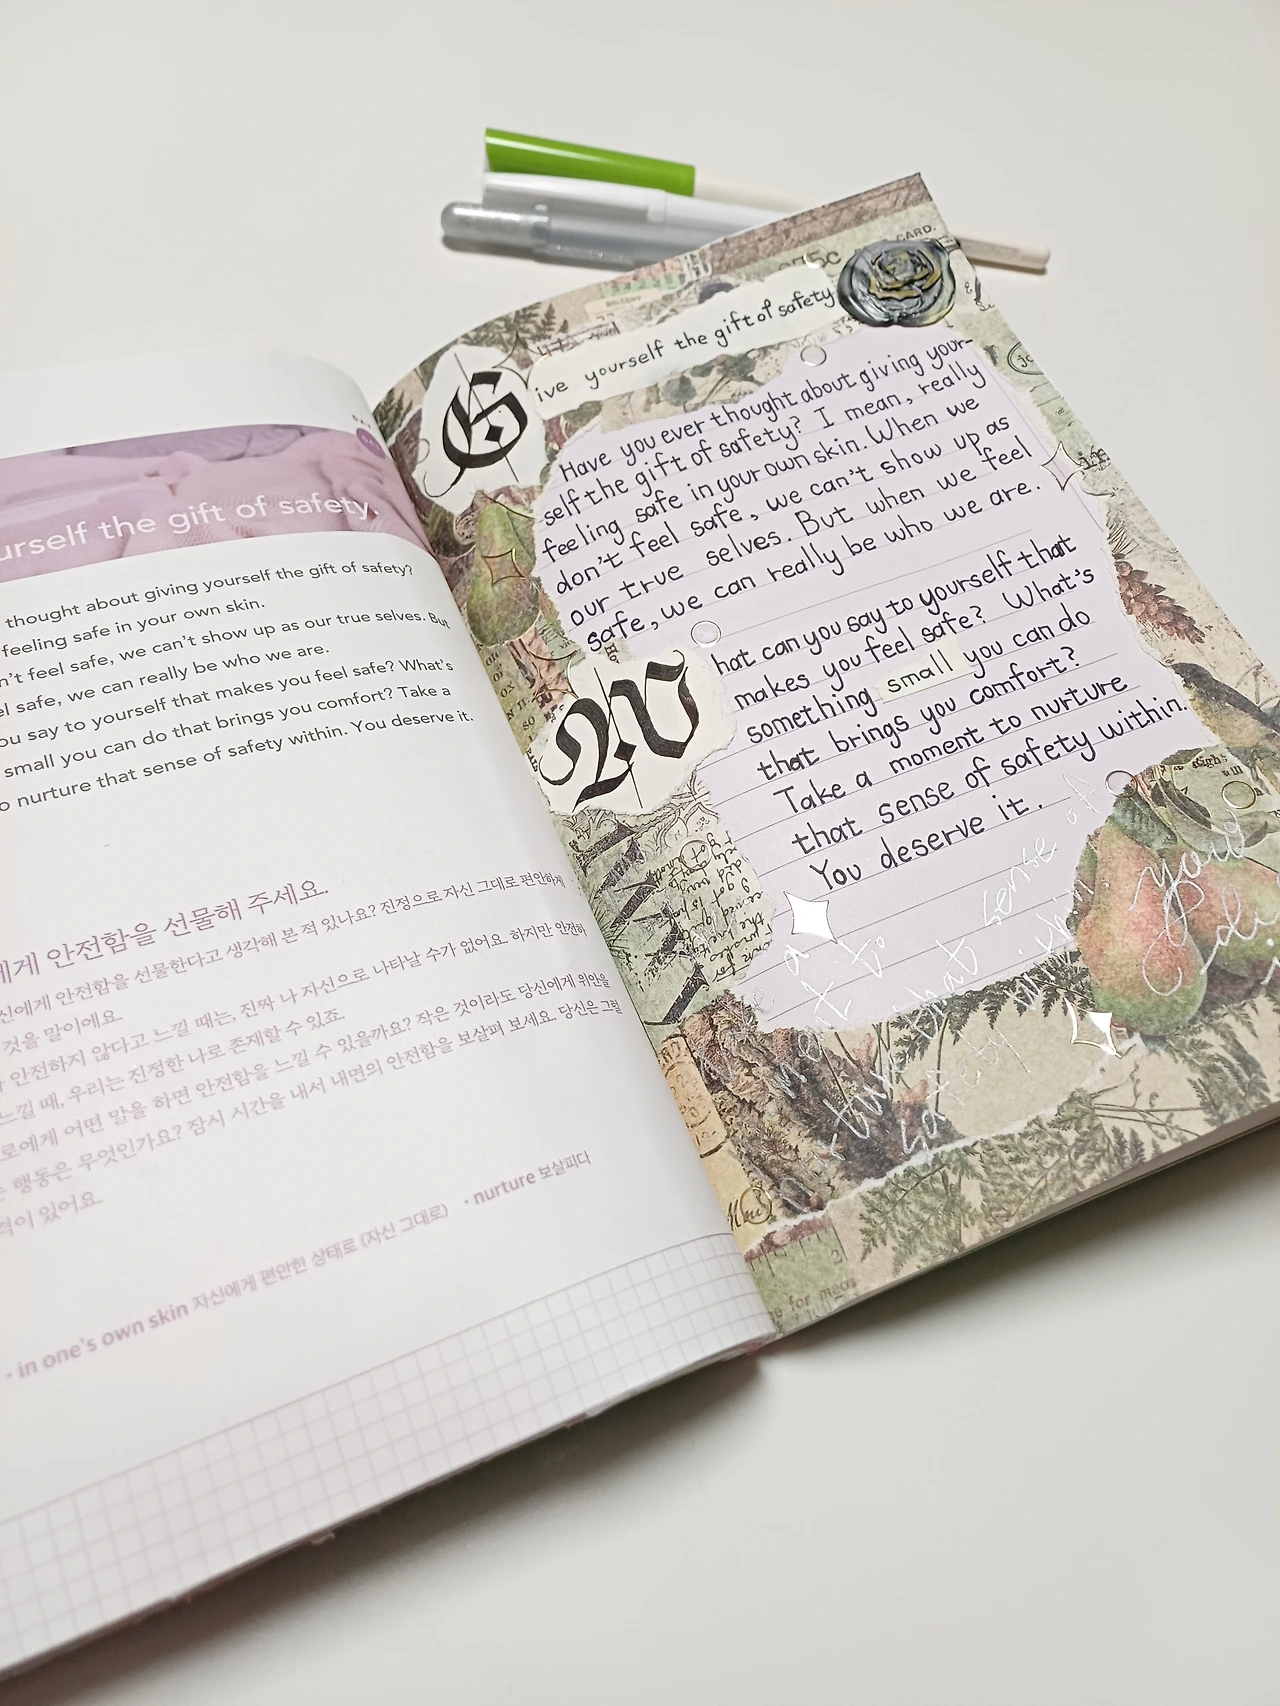 urself the gift of safety.
thought about giving yourself the gift of safety?
feeling safe in your own skin.
n't feel safe, we can't show up as our true selves. But
el safe, we can really be who we are.
ou say to yourself that makes you feel safe? What's
small you can do that brings you comfort? Take a
o nurture that sense of safety within. You deserve it.
에게 안전함을 선물해 주세요.
신에게 안전함을 선물한다고 생각해 본 적 있나요? 진정으로 자신 그대로 편안하게
것을 말이에요.
안전하지 않다고 느낄 때는, 진짜 나 자신으로 나타날 수가 없어요. 하지만 안전하
느낄 때, 우리는 진정한 나로 존재할 수 있죠.
로에게 어떤 말을 하면 안전함을 느낄 수 있을까요? 작은 것이라도 당신에게 위안을
는 행동은 무엇인가요? 잠시 시간을 내서 내면의 안전함을 보살펴 보세요. 당신은 그럴
격이 있어요.
• in one's own skin 자신에게 편안한 상태로 (자신 그대로) • nurture 보살피다
CARD.
Give yourself the gift of safety
Have you ever thought about giving your-
self the gift of safety? I mean, really
feeling safe in your own skin. When we
don't feel safe, we can't show up as
our true selves. But when we feel
safe, we can really be who we are.
What can you say to yourself that
makes you feel safe? What's
something small you can do
that brings you comfort?
Take a moment to nurture
that sense of safety within.
You deserve it.
sense of
that
safety within.
you
for meas